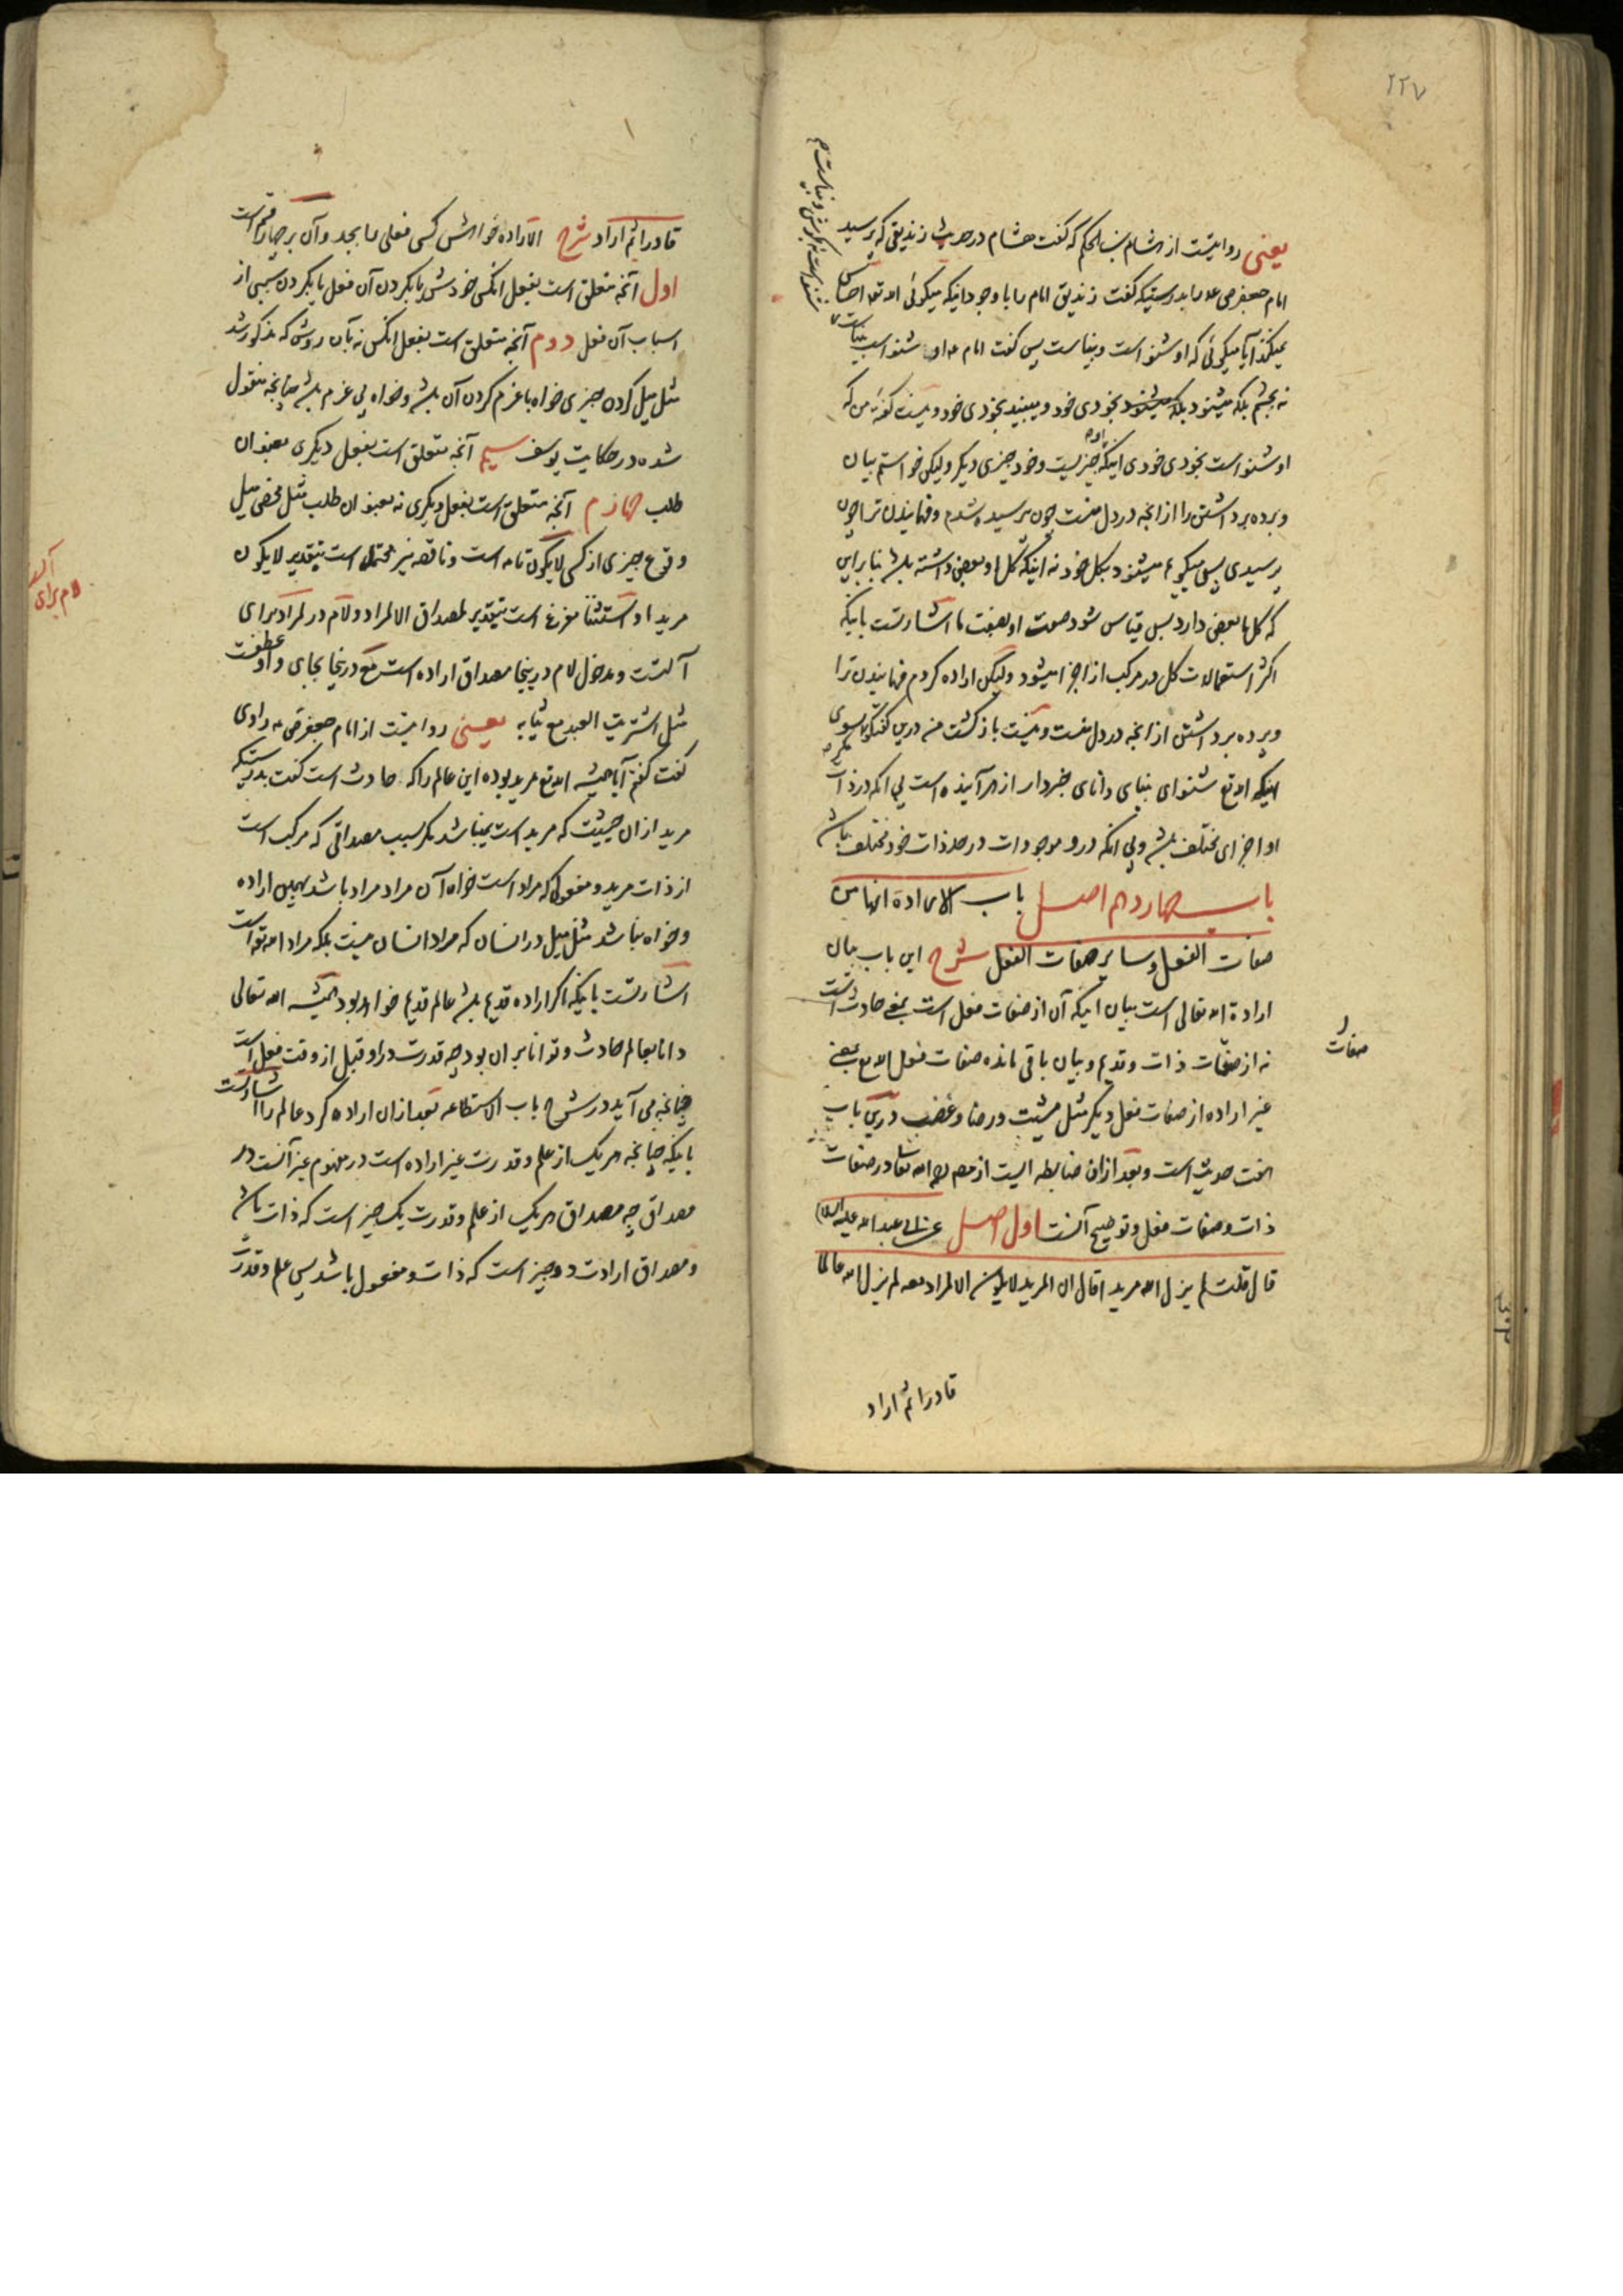 ٢٢٧
یعنی روایتست از هشام بن الحکم که گفت هشام در حدیث زندیقی که پرسید
امام جعفر ص ع را بدرستیکه گفت زندیق امام را با وجود اینکه میکوئی الله تع احساس
نمیکند آیا میکوئی که او شنوا است و بیناست پس گفت امام ع او شنوا است بیناست
نه بچشم بلکه میشنود بخودی خود و میبیند بخودی خود و نیست گفته من که
او شنوا است بخودی خودی اینکه او چیزیست و خود چیزی دیگر ولیکن خواستم بیان
و پرده برداشتن را از آنچه در دل منست چون پرسیده شدم و فهمانیدن ترا چون
پرسیدی پس میکویم میشنود بکل خود نه اینکه کل او بعضی داشته باشد بنا بر این
که کل ما بعضی دارد پس قیاس شود صفت او بصفت ما اشارتست باینکه
اکثر استعمالات کل در مرکب از اجزا میشود ولیکن اراده کردم فهمانیدن ترا
و پرده برداشتن از آنچه در دل منست و نیست بازگشت من درین گفتگو بسوی
اینکه الله تع شنوای بینای دانای خبردار از هر آینده است بی آنکه در ذات
او اجزای مختلف باشد و بی آنکه درو موجودات در حد ذات خود مختلف باشد
باب چهاردهم اصل باب الارادة انها من
صفات الفعل و سایر صفات الفعل شرح این باب بیان
ارادة الله تعالی است بیان اینکه آن از صفات فعل است بمعنی حادث است
نه از صفات ذات و قدیم و بیان باقی مانده صفات فعل الله تع یعنی
صفات
غیر اراده از صفات فعل دیگر مثل مشیت و رضا و غضب درین باب
هفت حدیث است و بعد از ان ضابطه ایست از مصنف رحمه الله تعالی در صفات
ذات و صفات فعل و توضیح آنست اول اصل عن ابی عبد الله علیه السلام
قال قلت لم یزل الله مریدا قال ان المرید لا یکون الا لمراد معه لم یزل الله عالما
قادرا ثم اراد
قادرا ثم اراد شرح الارادة خواهش کسی فعلی را بجد و آن بر چهار قسم است
اول آنچه متعلق است بفعل آنکس خودش یا بکردن آن فعل یا بکردن سببی از
اسباب آن فعل دوم آنچه متعلق است بفعل آنکس نه بآن روش که مذکور شد
مثل میل کردن چیزی خواه با عزم کردن آن باشد و خواه بی عزم باشد چنانچه منقول
شده در حکایت یوسف سیم آنچه متعلق است بفعل دیگری بعنوان
طلب چهارم آنچه متعلق است بفعل دیگری نه بعنوان طلب مثل محض میل
وقوع چیزی از کسی لا یکون تامه است و ناقصه نیز محتمل است بتقدیر لا یکون
مریدا و استثنا مفرغ است بتقدیر لمصداق الا لمراد و لام در لمراد برای
آلتست و مدخول لام درینجا مصداق اراده است مع درینجا بجای واو عطفست
مثل اشتریت العبد مع ثیابه یعنی روایتست از امام جعفر ص ع راوی
گفت گفتم آیا همیشه الله تع مرید بوده این عالم را که حادث است گفت بدرستیکه
مرید از ان حیثیت که مرید است نمیباشد مگر بسبب مصداقی که مرکب است
از ذات مرید و مفعولی که مراد است خواه آن مراد مراد باشد بهمین اراده
و خواه نباشد مثل میل در انسان که مراد انسان نیست بلکه مراد الله تع است
اشارتست باینکه اگر اراده قدیم باشد عالم قدیم خواهد بود همیشه الله تعالی
دانا بعالم حادث و توانا بر ان بود چه قدرت در او قبل از وقت فعل است
چنانچه می آید در شرح باب الاستطاعه بعد از ان اراده کرد عالم را اشارتست
باینکه چنانچه هر یک از علم و قدرت غیر اراده است در مفهوم غیر آنست در
مصداق چه مصداق هر یک از علم و قدرت یک چیز است که ذات باشد
و مصداق ارادت دو چیز است که ذات و مفعول باشد پس علم و قدرت